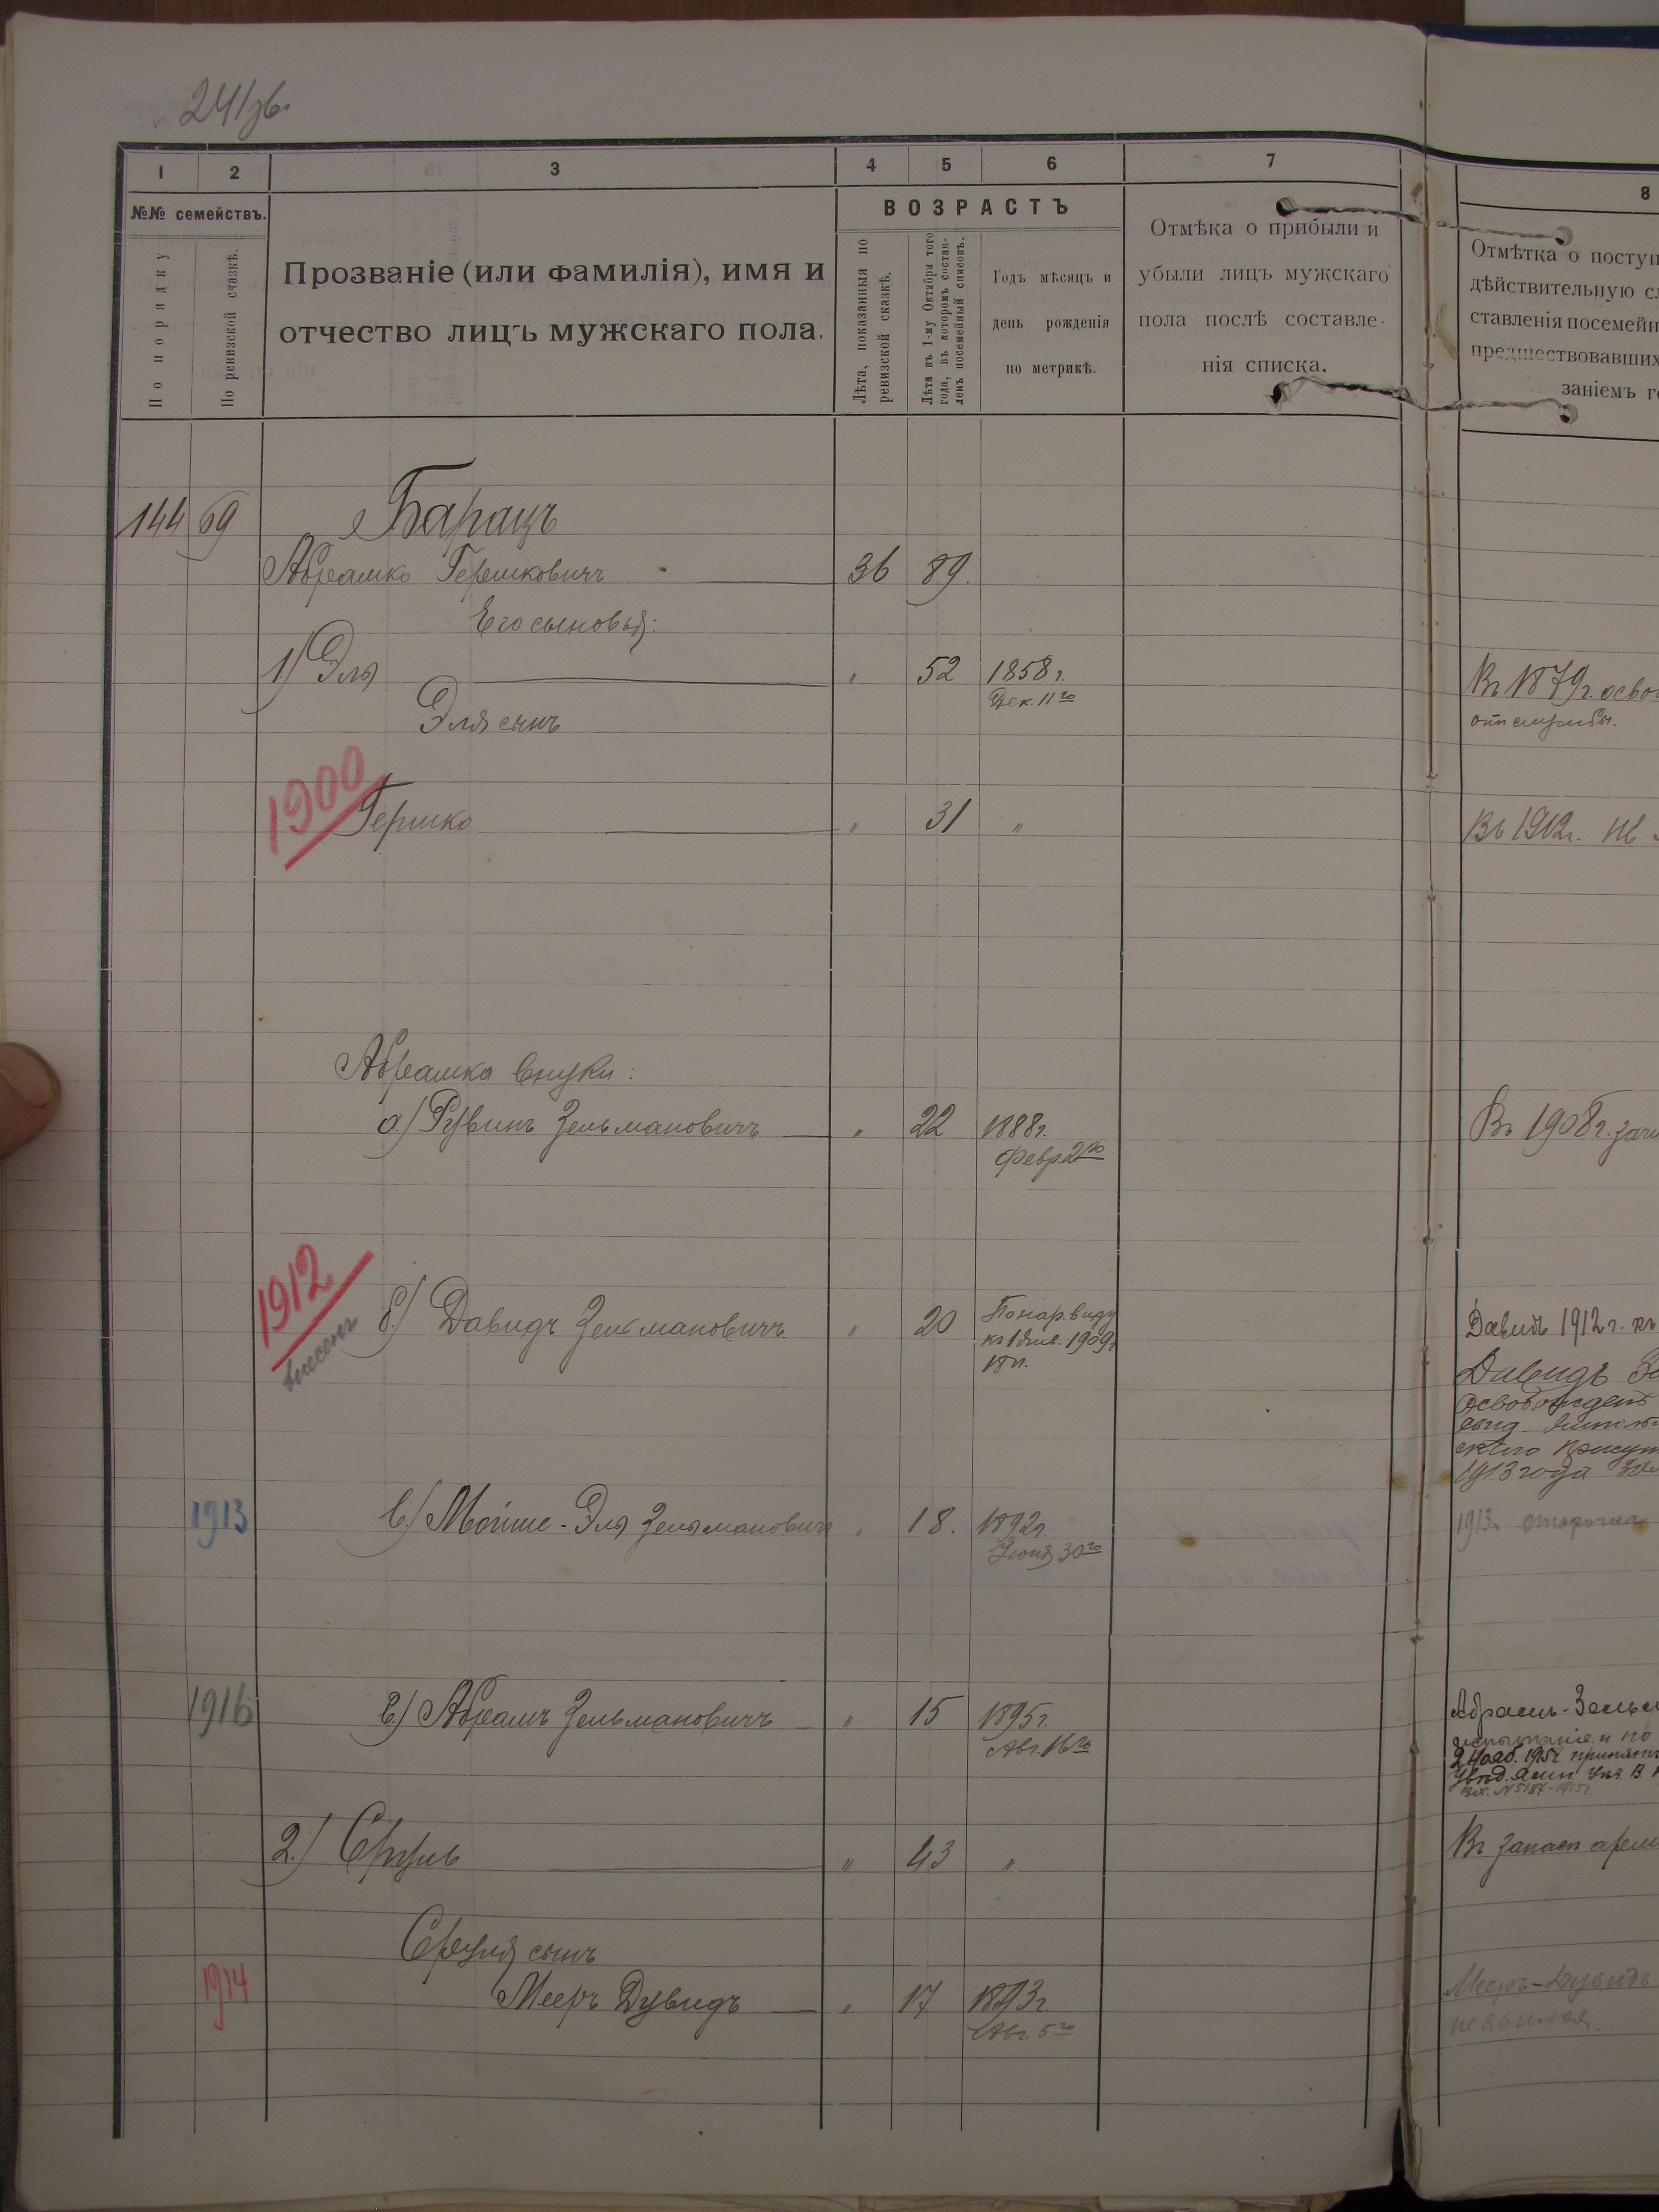 241об.
1 2 3 4 5 6 7 8
№№ семействъ.
По порядку
По ревизской сказкѣ.
Прозваніе (или фамилія), имя и
отчество лицъ мужскаго пола.
ВОЗРАСТЪ
Лѣта, показанныя по
ревизской сказкѣ.
Лѣта къ 1-му Октября того
года, въ которомъ состав-
ленъ посемейный списокъ.
Годъ мѣсяцъ и
день рожденія
по метрикѣ.
Отмѣка о прибыли и
убыли лицъ мужскаго
пола послѣ составле-
нія списка.
Отмѣтка о поступ
дѣйствительную сл
ставленія посемейн
предшествовавших
заніемъ го
144 69 Барацъ
Абрамко Гершковичъ 36 89.
Его сыновья:
1.) Эля " 52 1858 г.
Дек. 11го
Въ 1879 г. осво
от службы.
Эля сынъ
1900
Гершко " 31 "
Въ 1912 г. не
Абрамка внуки:
а.) Рувинъ Зельмановичъ " 22 1888 г.
Февр. 2го
Въ 1908 г. зачи
1912
внесенъ
б.) Давидъ Зельмановичъ " 20 По нар. виду
къ 1 янв. 1909 г
18 л.
Давидъ 1912 г. къ
Давидъ Зе
освобожденъ
1913 года
1913
в.) Мойше-Эля Зельмановичъ " 18. 1892 г.
Іюня 30го
1913 г. отсрочка
1916
г.) Абрамъ Зельмановичъ " 15 1895 г.
Авг. 16го
Абрамъ-Зельм
испытаніе и по
1915 г. принятъ
Вх. № 5187-1915 г.
2.) Сруль " 43 "
Въ запасѣ арміи
Сруля сынъ
1914
Мееръ Дувидъ " 17 1893 г
Авг 5го
Мееръ-Дувидъ
неявился.